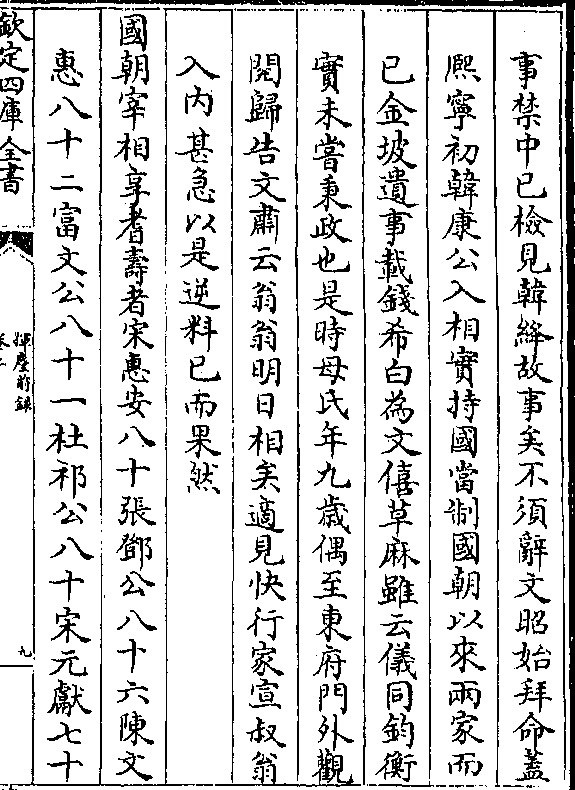 事禁中已檢見韓絳故事矣不須辭文昭始拜命蓋
熙寧初韓康公入相實持國當制國朝以來兩家而
已金坡遺事載錢希白為文僖草麻雖云儀同鈞衡
實未嘗秉政也是時母氏年九歲偶至東府門外觀
閱歸告文肅云翁翁明日相矣適見快行家宣叔翁
入內甚急以是逆料已而果然
國朝宰相享耆壽者宋惠安八十張鄧公八十六陳文
惠八十二富文公八十一杜祁公八十宋元獻七十
欽定四庫全書
揮麈前錄
卷二
九